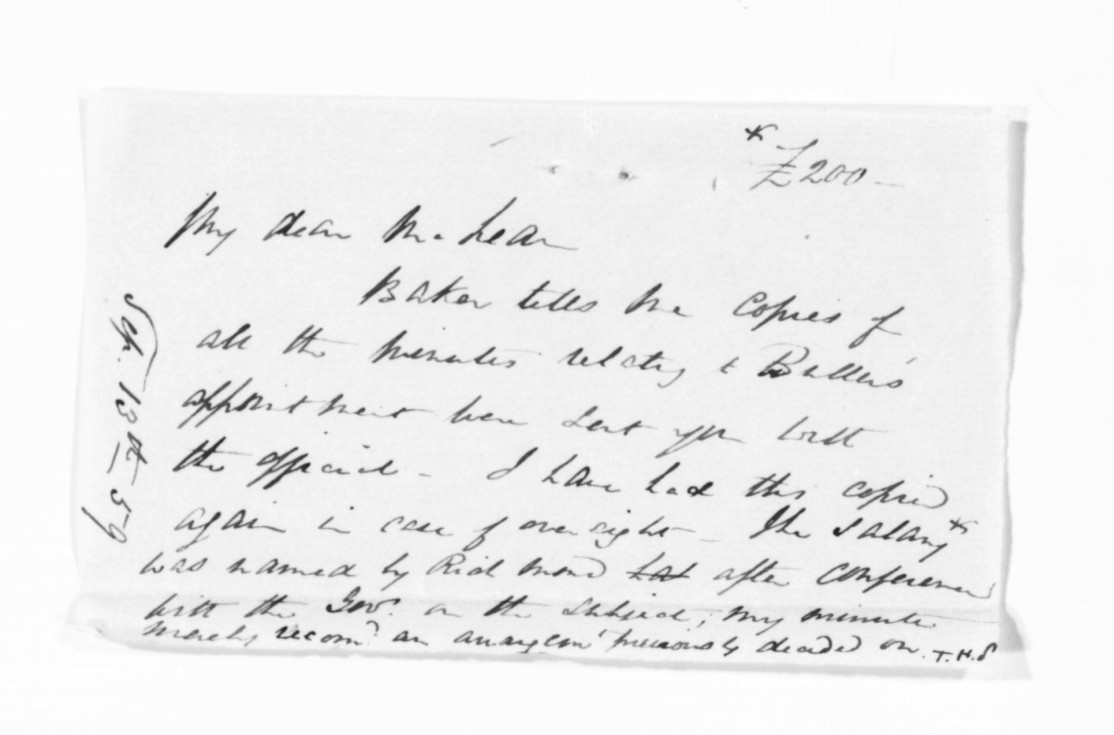 * £200 —
My dear McLean
Baker tells me copies of
all the minutes relating to Buller's
appointment were sent you with
the official — I have had this copied
again in case of oversight — The salary *
was named by Richmond after conference
with the Govr. on the subject; my minute
merely recomd. an arrangemt. previously decided on. T.H.S
Sep. 13th 59